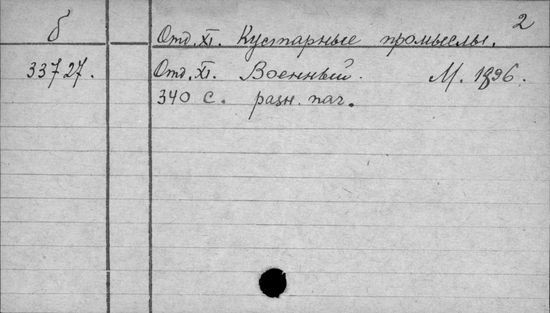 2
б Отд. XI. Кустарные промыслы.
33727. Отд. XI. Военный. М. 1896.
340 с. разн. паг.